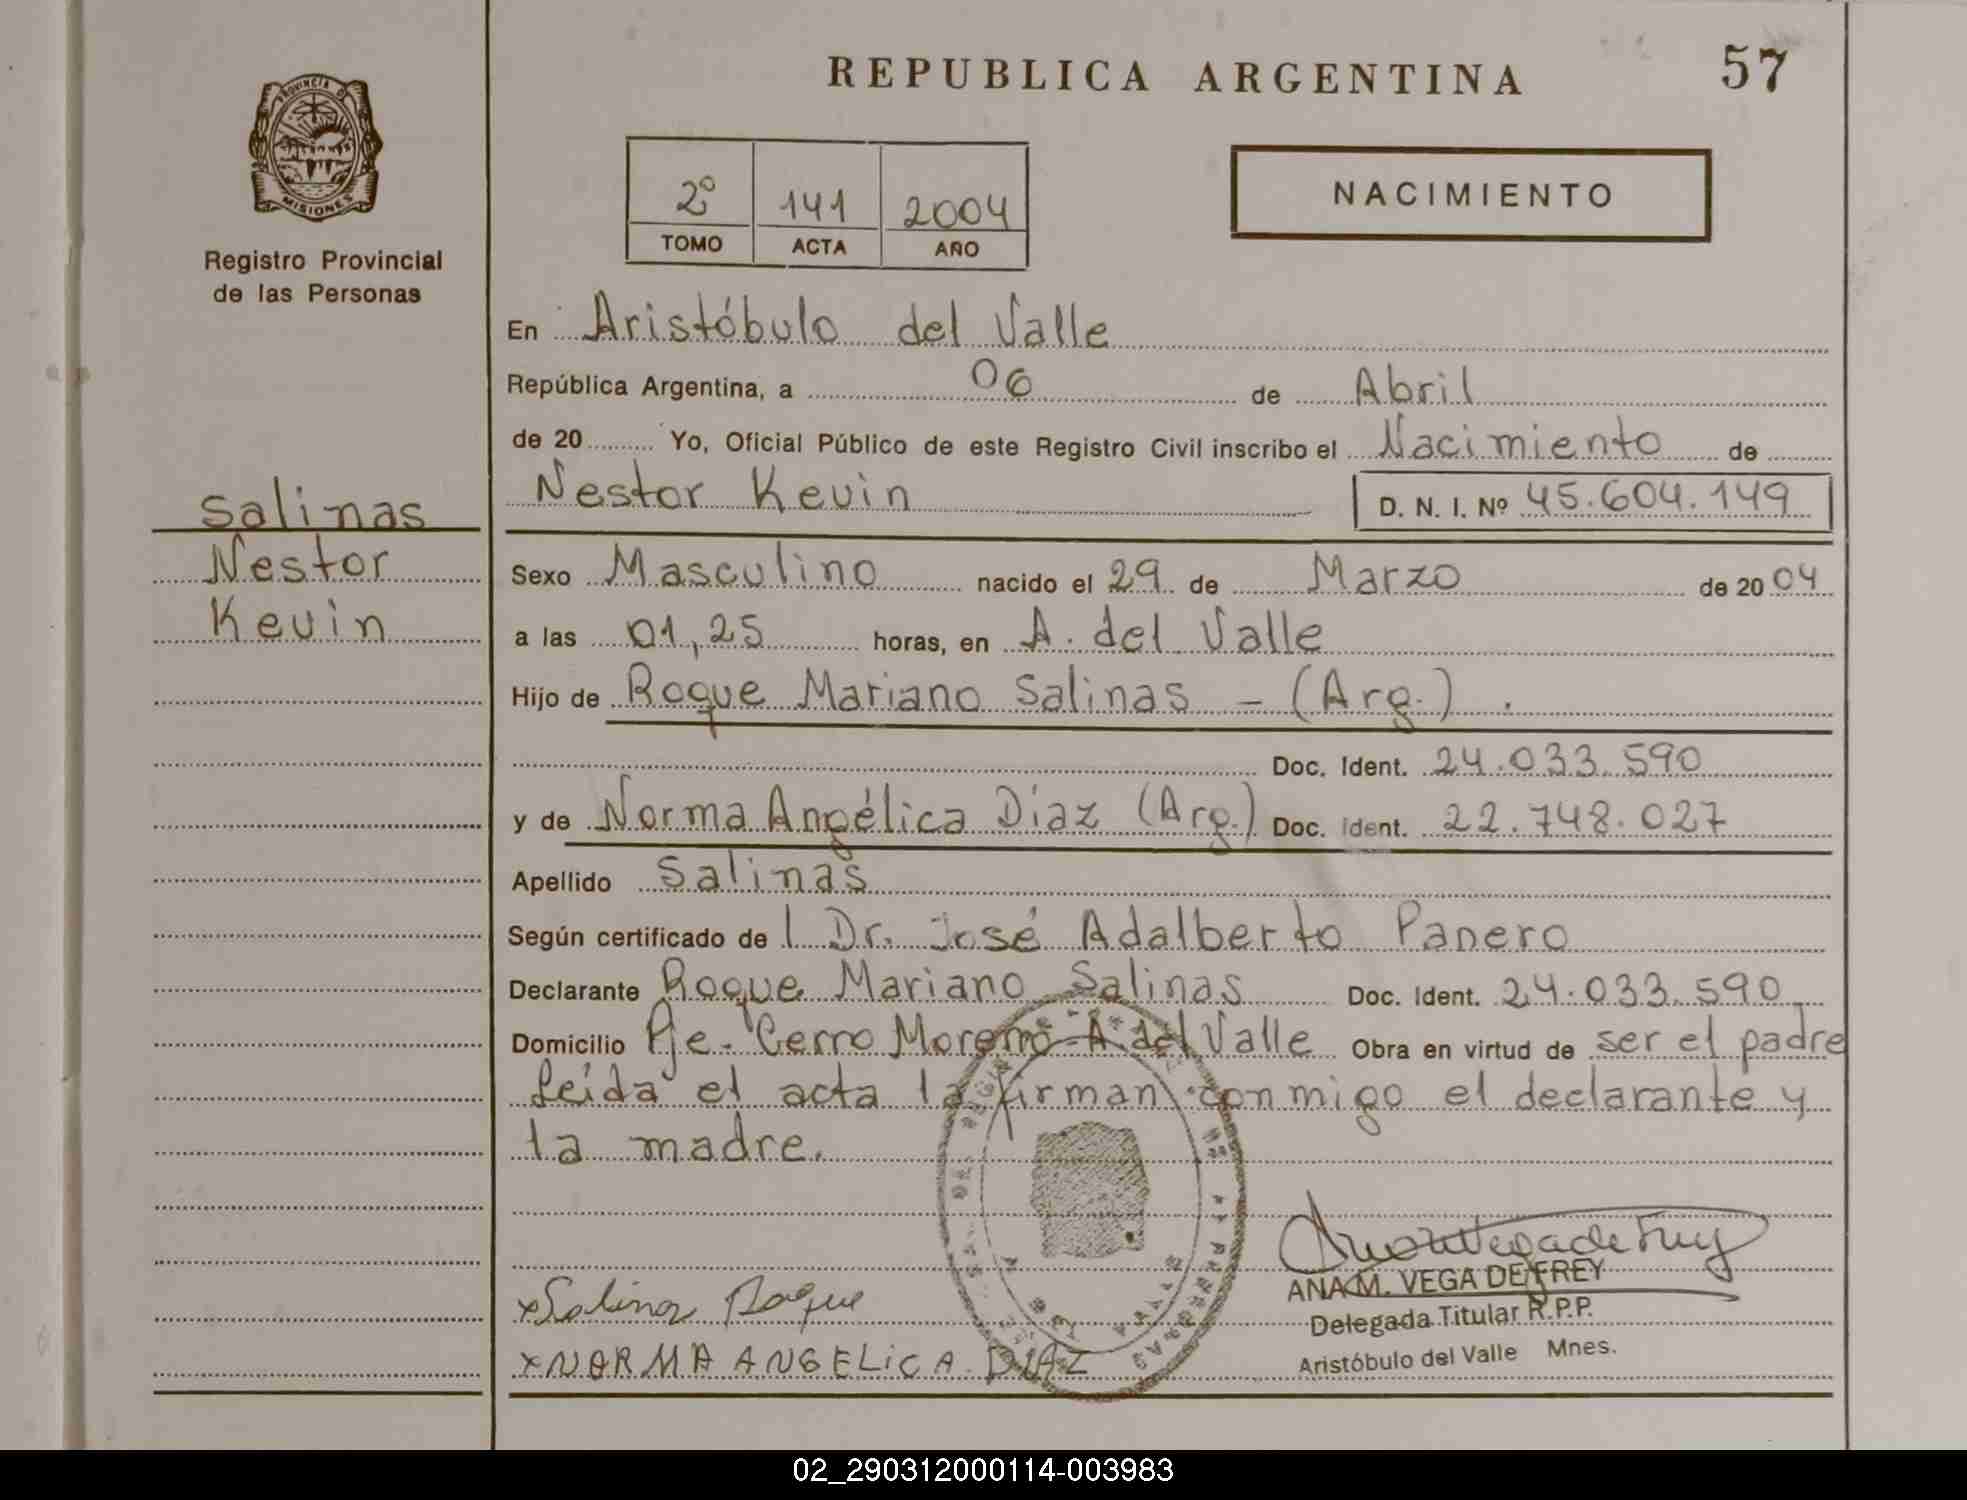 REPUBLICA ARGENTINA
57
PROVINCIA DE
MISIONES
Registro Provincial
de las Personas
2º 141 2004
TOMO ACTA AÑO
NACIMIENTO
En Aristóbulo del Valle
República Argentina, a 06 de Abril
de 20 Yo, Oficial Público de este Registro Civil inscribo el Nacimiento de
Nestor Kevin D. N. I. Nº 45.604.149
Salinas
Nestor
Kevin
Sexo Masculino nacido el 29 de Marzo de 20 04
a las 01,25 horas, en A. del Valle
Hijo de Roque Mariano Salinas - (Arg.).
Doc. Ident. 24.033.590
y de Norma Angélica Diaz (Arg.) Doc. Ident. 22.748.027
Apellido Salinas
Según certificado de l Dr. José Adalberto Panero
Declarante Roque Mariano Salinas Doc. Ident. 24.033.590
Domicilio Pje. Cerro Moreno - A del Valle Obra en virtud de ser el padre
Leida el acta la firman conmigo el declarante y
la madre.
ANA M. VEGA DE FREY
Delegada Titular R.P.P.
Aristóbulo del Valle Mnes.
x Salinas Roque
x NORMA ANGELICA DIAZ
02_290312000114-003983